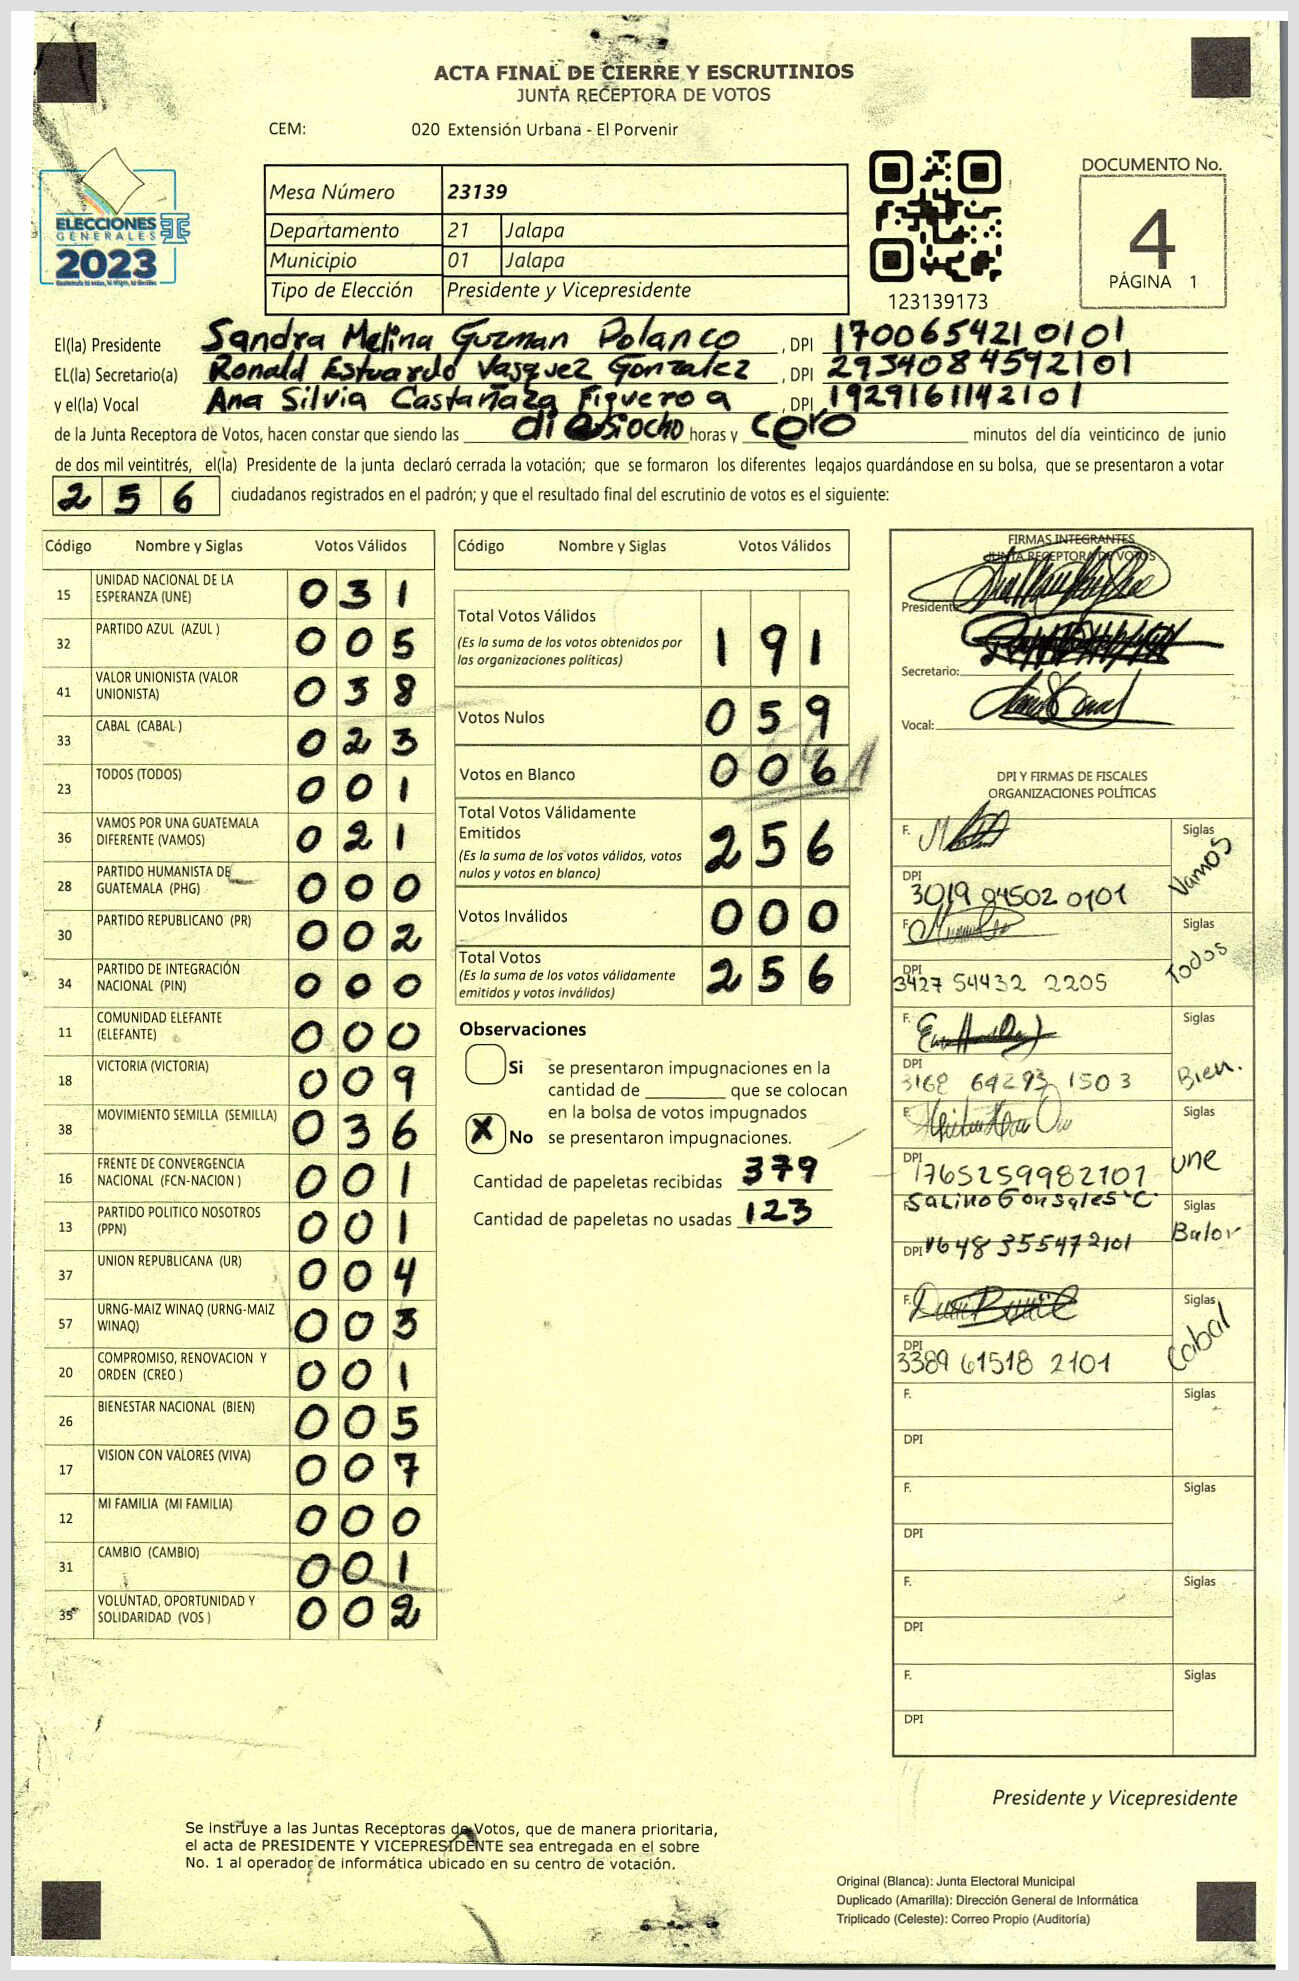 ACTA FINAL DE CIERRE Y ESCRUTINIOS
JUNTA RECEPTORA DE VOTOS
CEM: 020 Extensión Urbana - El Porvenir
ELECCIONES
GENERALES
2023
Mesa Número 23139
Departamento 21 Jalapa
Municipio 01 Jalapa
Tipo de Elección Presidente y Vicepresidente
123139173
DOCUMENTO No.
4
PÁGINA 1
El(la) Presidente Sandra Melina Guzman Polanco , DPI 1700654210101
EL(la) Secretario(a) Ronald Estuardo Vasquez Gonzalez , DPI 2934084592101
y el(la) Vocal Ana Silvia Castañaza Figueroa , DPI 1929161142101
de la Junta Receptora de Votos, hacen constar que siendo las diesiocho horas y cero minutos del día veinticinco de junio
de dos mil veintitrés, el(la) Presidente de la junta declaró cerrada la votación; que se formaron los diferentes legajos guardándose en su bolsa, que se presentaron a votar
2 5 6 ciudadanos registrados en el padrón; y que el resultado final del escrutinio de votos es el siguiente:
Código Nombre y Siglas Votos Válidos
15 UNIDAD NACIONAL DE LA ESPERANZA (UNE) 0 3 1
32 PARTIDO AZUL (AZUL ) 0 0 5
41 VALOR UNIONISTA (VALOR UNIONISTA) 0 3 8
33 CABAL (CABAL ) 0 2 3
23 TODOS (TODOS) 0 0 1
36 VAMOS POR UNA GUATEMALA DIFERENTE (VAMOS) 0 2 1
28 PARTIDO HUMANISTA DE GUATEMALA (PHG) 0 0 0
30 PARTIDO REPUBLICANO (PR) 0 0 2
34 PARTIDO DE INTEGRACIÓN NACIONAL (PIN) 0 0 0
11 COMUNIDAD ELEFANTE (ELEFANTE) 0 0 0
18 VICTORIA (VICTORIA) 0 0 9
38 MOVIMIENTO SEMILLA (SEMILLA) 0 3 6
16 FRENTE DE CONVERGENCIA NACIONAL (FCN-NACION ) 0 0 1
13 PARTIDO POLITICO NOSOTROS (PPN) 0 0 1
37 UNION REPUBLICANA (UR) 0 0 4
57 URNG-MAIZ WINAQ (URNG-MAIZ WINAQ) 0 0 3
20 COMPROMISO, RENOVACION Y ORDEN (CREO ) 0 0 1
26 BIENESTAR NACIONAL (BIEN) 0 0 5
17 VISION CON VALORES (VIVA) 0 0 7
12 MI FAMILIA (MI FAMILIA) 0 0 0
31 CAMBIO (CAMBIO) 0 0 1
35 VOLUNTAD, OPORTUNIDAD Y SOLIDARIDAD (VOS ) 0 0 2
Código Nombre y Siglas Votos Válidos
Total Votos Válidos 1 9 1
(Es la suma de los votos obtenidos por
las organizaciones políticas)
Votos Nulos 0 5 9
Votos en Blanco 0 0 6
Total Votos Válidamente
Emitidos 2 5 6
(Es la suma de los votos válidos, votos
nulos y votos en blanco)
Votos Inválidos 0 0 0
Total Votos 2 5 6
(Es la suma de los votos válidamente
emitidos y votos inválidos)
Observaciones
Si se presentaron impugnaciones en la
cantidad de ________ que se colocan
en la bolsa de votos impugnados
X No se presentaron impugnaciones.
Cantidad de papeletas recibidas 379
Cantidad de papeletas no usadas 123
FIRMAS INTEGRANTES
JUNTA RECEPTORA DE VOTOS
Presidente:
Secretario:
Vocal:
DPI Y FIRMAS DE FISCALES
ORGANIZACIONES POLÍTICAS
F. Siglas Vamos
DPI 3019 04502 0101
F. Siglas Todos
DPI 3427 54432 2205
F. Siglas Bien.
DPI 3168 64293 1503
F. Siglas une
DPI 1765259982101
F. Salino Gonsales C. Siglas Balor
DPI 1648 355472101
F. Siglas Cabal
DPI 3389 61518 2101
F. Siglas
DPI
F. Siglas
DPI
F. Siglas
DPI
F. Siglas
DPI
Presidente y Vicepresidente
Se instruye a las Juntas Receptoras de Votos, que de manera prioritaria,
el acta de PRESIDENTE Y VICEPRESIDENTE sea entregada en el sobre
No. 1 al operador de informática ubicado en su centro de votación.
Original (Blanca): Junta Electoral Municipal
Duplicado (Amarilla): Dirección General de Informática
Triplicado (Celeste): Correo Propio (Auditoría)